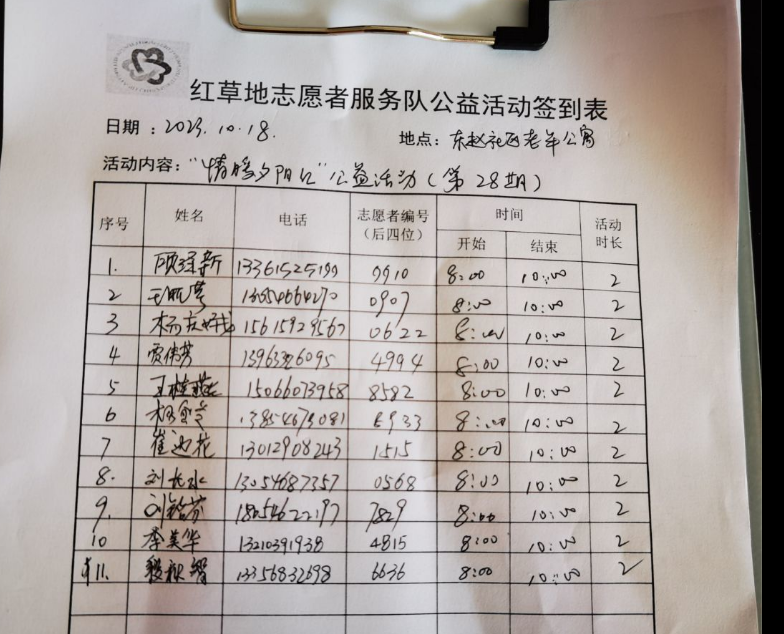 红草地志愿者服务队公益活动签到表
日期：2023.10.18. 地点：东赵社区老年公寓
活动内容：“情暖夕阳红”公益活动（第28期）
序号 姓名 电话 志愿者编号（后四位） 时间 活动时长
开始 结束
1. 13361525199 0910 8:00 10:00 2
2 13654664270 0907 8:00 10:00 2
3 15615929567 0622 8:00 10:00 2
4 贾伟芳 13963326095 4994 8:00 10:00 2
5 王桂燕 15066073958 8582 8:00 10:00 2
6 13854673081 8:00 10:00 2
7 崔迎花 13012908243 1515 8:00 10:00 2
8. 刘长水 13054687357 0568 8:00 10:00 2
9. 刘铭芬 18654622197 7829 8:00 10:00 2
10 李美华 13210391938 4815 8:00 10:00 2
11. 13356832698 6636 8:00 10:00 2